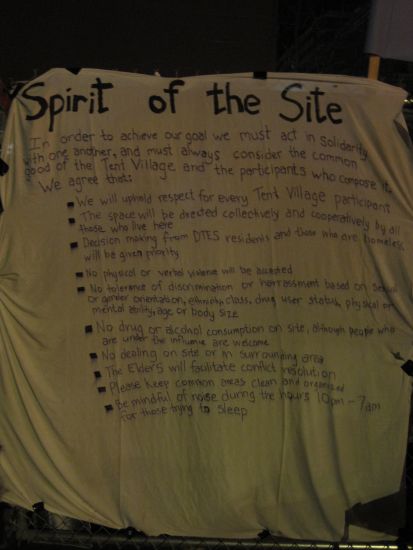 Spirit of the Site
In order to achieve our goal we must act in solidarity
with one another, and must always consider the common
good of the Tent Village and the participants who compose it.
We agree that:
We will uphold respect for every Tent Village participant
The space will be directed collectively and cooperatively by all
those who live here
Decision making from DTES residents and those who are homeless
will be given priority
No physical or verbal violence will be accepted
No tolerance of discrimination or harrassment based on sexual
or gender orientation, ethnicity, class, drug user status, physical or
mental ability, age or body size
No drug or alcohol consumption on site, although people who
are under the influence are welcome
No dealing on site or in surrounding area
The Elders will facilitate conflict resolution
Please keep common areas clean and organized
Be mindful of noise during the hours 10pm - 7am
for those trying to sleep